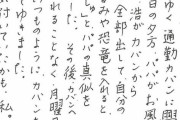 ゆく通勤カバンに興
日の夕方、パパがお風
浩がカバンから
全部出して自分の
みや恐竜を入れると
」とパパの真似を
ました。その後カバンへ
れることなく月曜
つものようにカバンを
てゆきました。
付いてたかも。私。